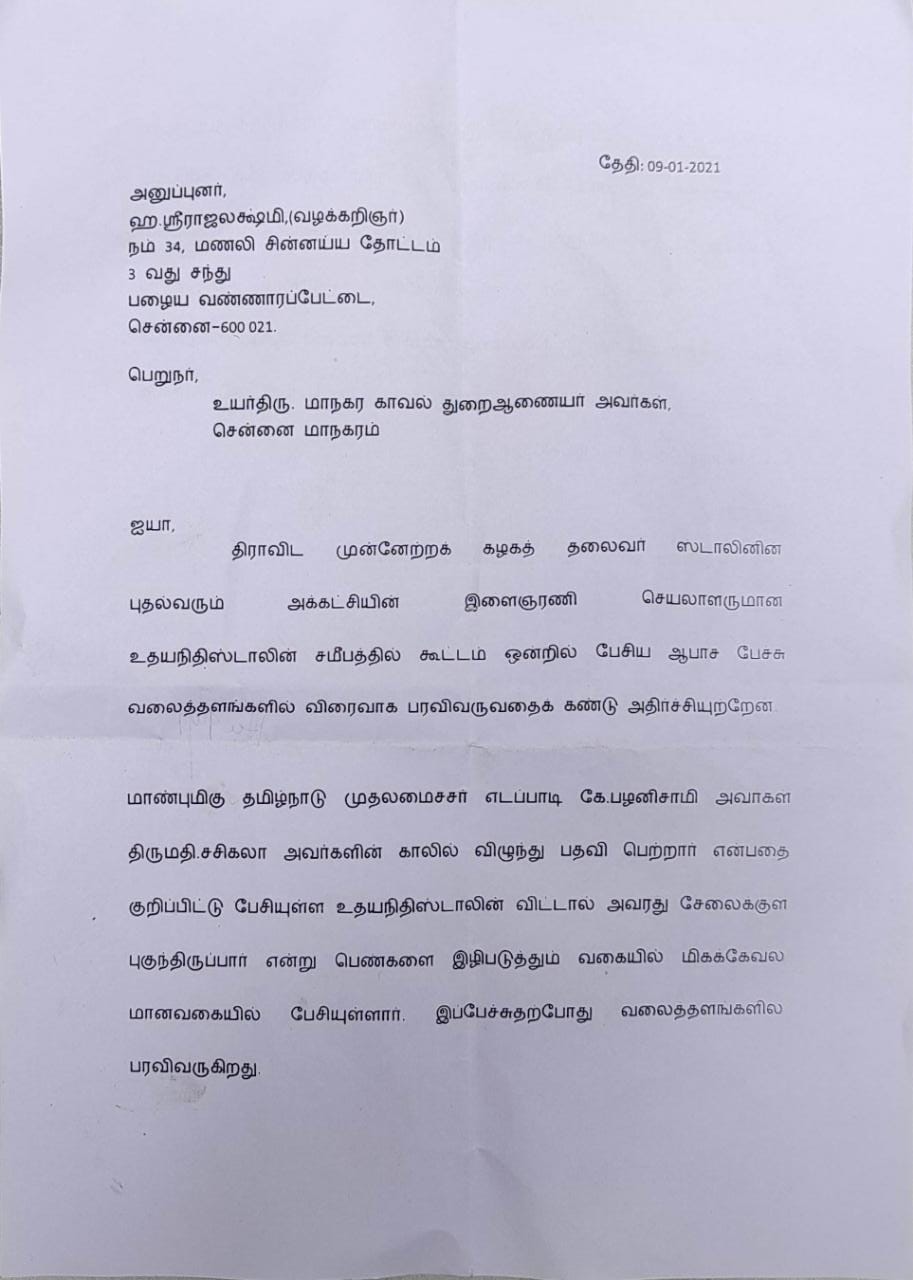 தேதி: 09-01-2021
அனுப்புனர்,
ஹ.ஸ்ரீராஜலக்ஷ்மி,(வழக்கறிஞர்)
நம் 34, மணலி சின்னய்ய தோட்டம்
3 வது சந்து
பழைய வண்ணாரப்பேட்டை,
சென்னை-600 021.
பெறுநர்,
உயர்திரு. மாநகர காவல் துறைஆணையர் அவர்கள்,
சென்னை மாநகரம்
ஐயா,
திராவிட முன்னேற்றக் கழகத் தலைவர் ஸ்டாலினின்
புதல்வரும் அக்கட்சியின் இளைஞரணி செயலாளருமான
உதயநிதிஸ்டாலின் சமீபத்தில் கூட்டம் ஒன்றில் பேசிய ஆபாச பேச்சு
வலைத்தளங்களில் விரைவாக பரவிவருவதைக் கண்டு அதிர்ச்சியுற்றேன்.
மாண்புமிகு தமிழ்நாடு முதலமைச்சர் எடப்பாடி கே.பழனிசாமி அவர்கள்
திருமதி.சசிகலா அவர்களின் காலில் விழுந்து பதவி பெற்றார் என்பதை
குறிப்பிட்டு பேசியுள்ள உதயநிதிஸ்டாலின் விட்டால் அவரது சேலைக்குள்
புகுந்திருப்பார் என்று பெண்களை இழிபடுத்தும் வகையில் மிகக்கேவல
மானவகையில் பேசியுள்ளார். இப்பேச்சுதற்போது வலைத்தளங்களில்
பரவிவருகிறது.